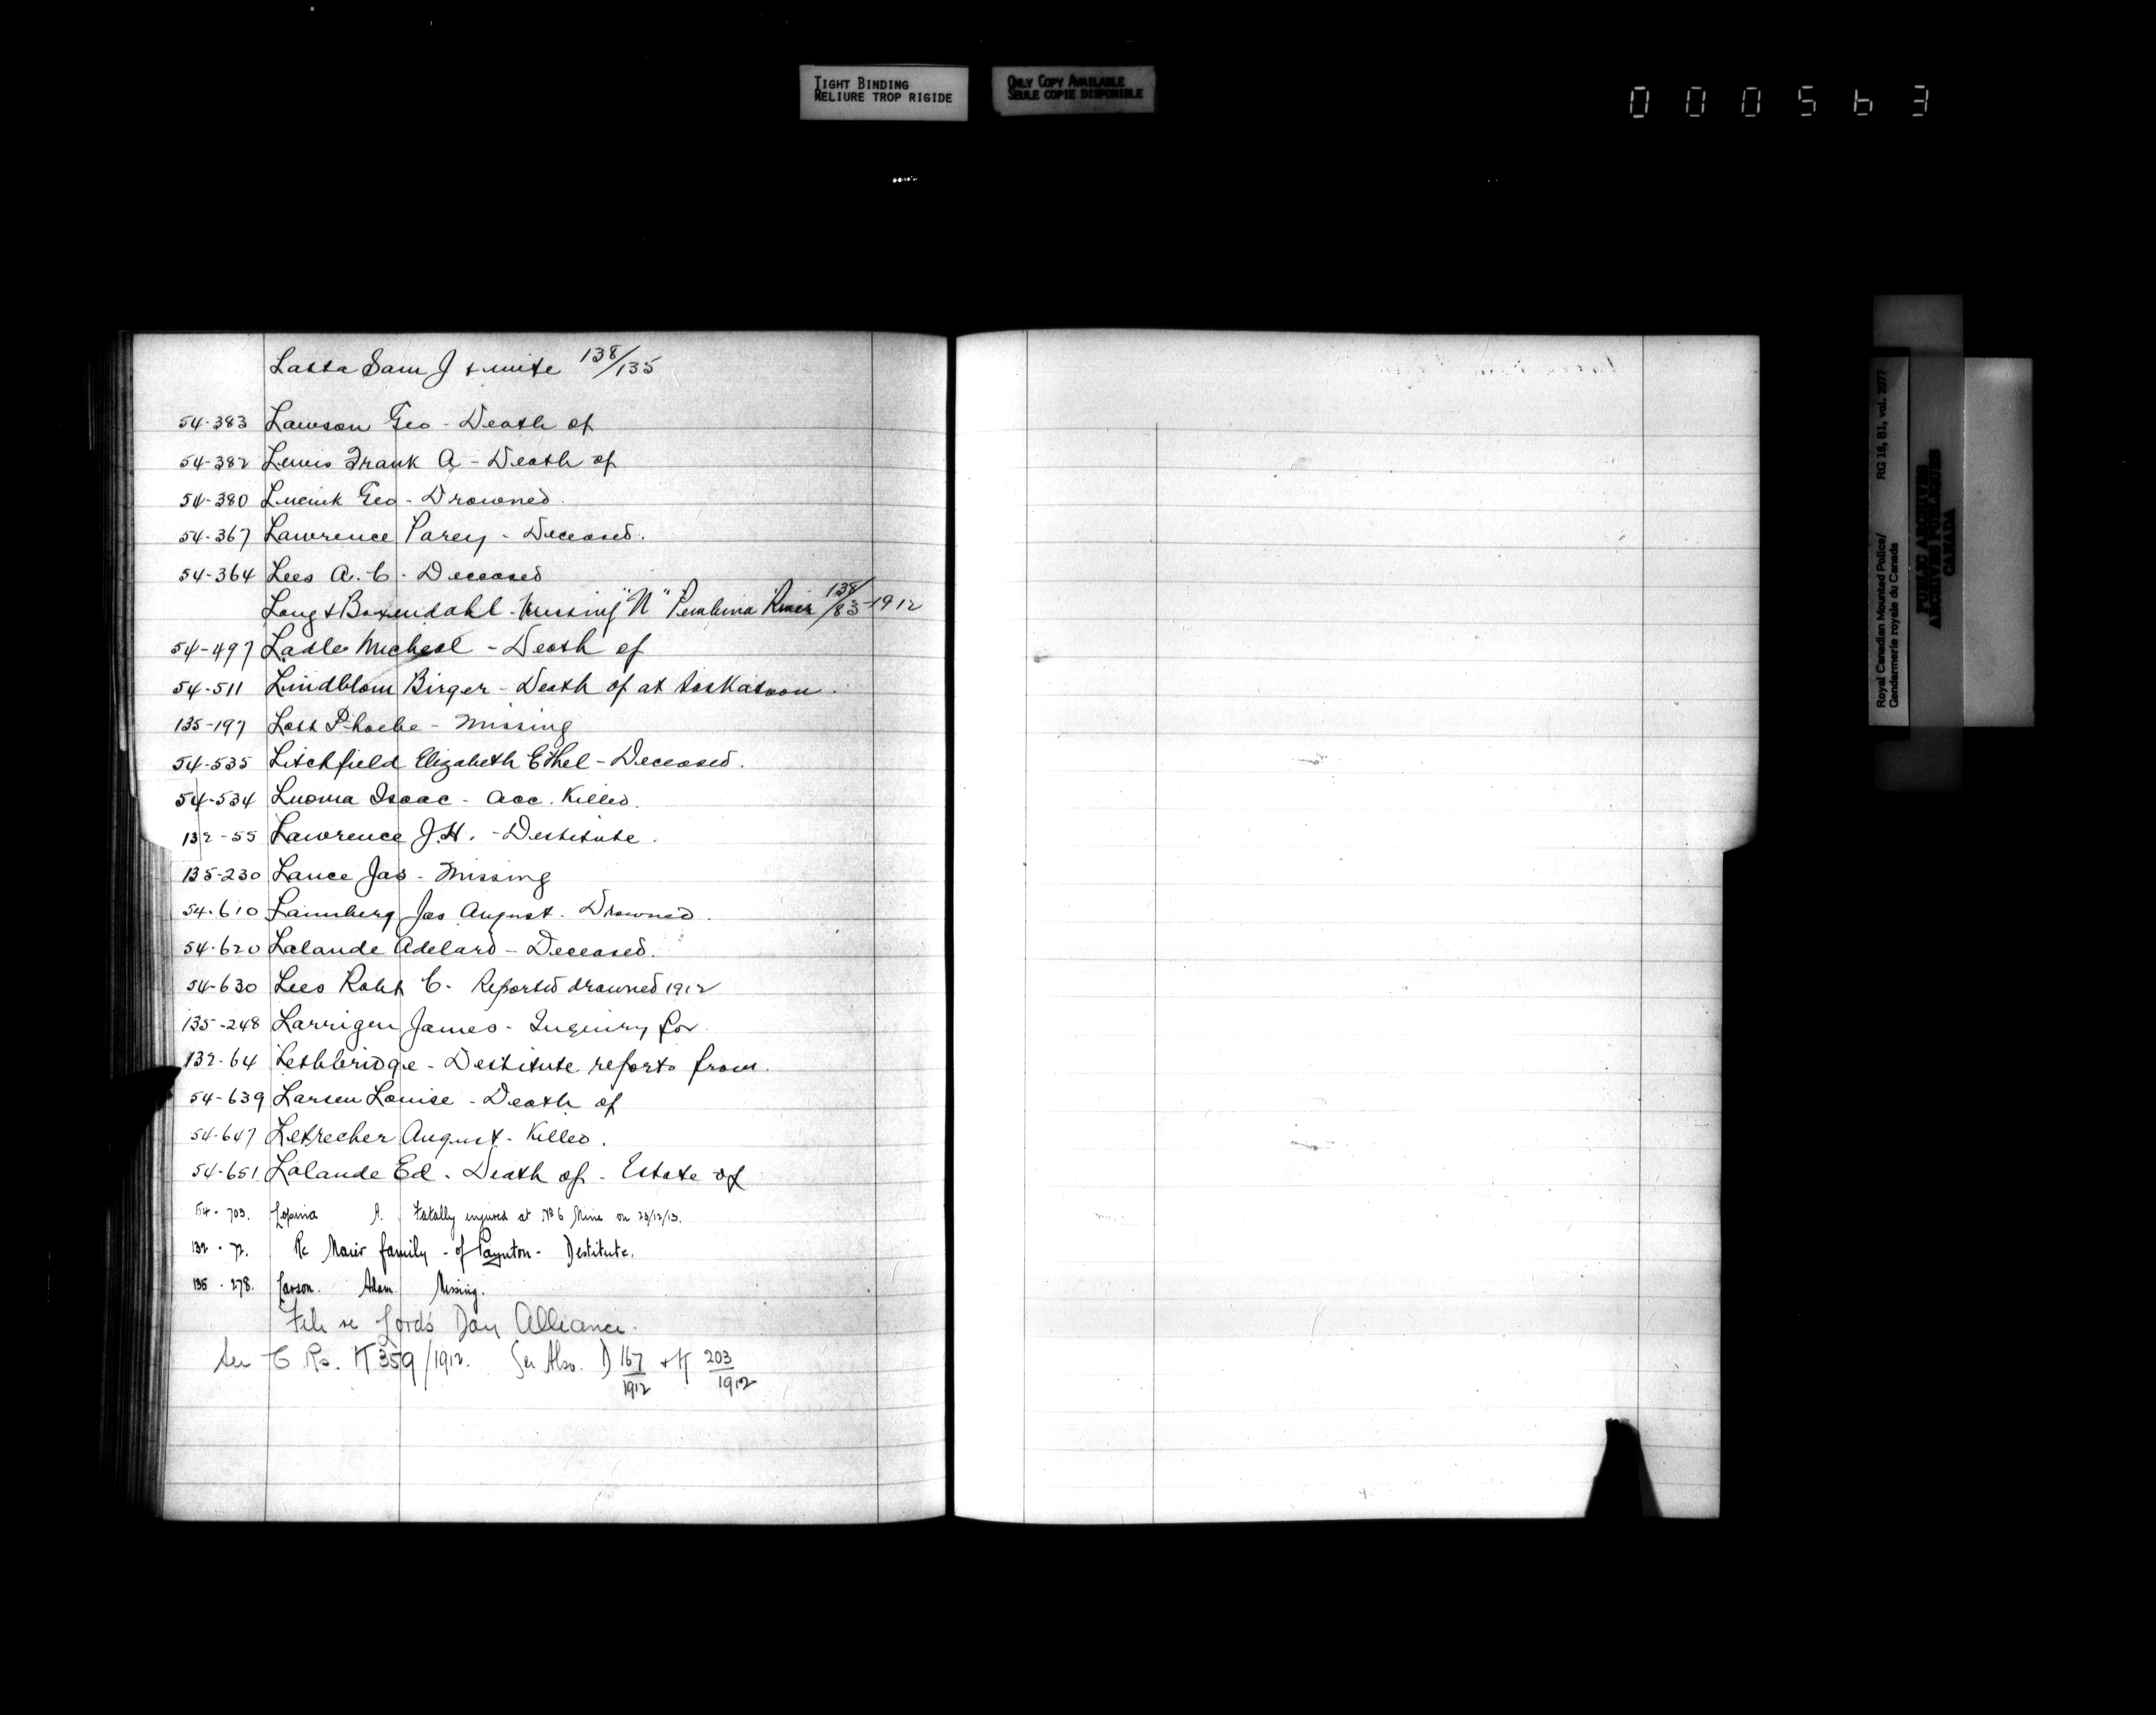 TIGHT BINDING
RELIURE TROP RIGIDE
ONLY COPY AVAILABLE
SEULE COPIE DISPONIBLE
000563
Lasta Sam J + 138/135
54-383 Lawson Geo - Death of
54-382 Lewis Frank A - Death of
54-380 Geo - Drowned.
54-367 Lawrence Parey - Deceased.
54-364 Lees A. C. - Deceased
Long + Boxendahl - Missing "N" Pembina River 138/83-1912
54-497 Ladle Micheal - Death of
54-511 Lindblom Birger - Death of at Saskatoon.
135-197 Lott Phoebe - Missing
54-535 Litchfield Elizabeth Ethel - Deceased.
54-534 Luoma Isaac - Acc. Killed.
132-55 Lawrence J.H. - Destitute.
135-230 Lance Jas - Missing
54-610 Jas August - Drowned.
54-620 Lalande Adelard - Deceased.
54-630 Lees Robt C. Reported drowned 1912
135-248 Larrigen James - Inquiry for
132-64 Lethbridge - Destitute reports from.
54-639 Larsen Louise - Death of
54-647 Letrecher August - Killed.
54-651 Lalande Ed. Death of - Estate of
54-703. A. Fatally injured at No 6 Mine on 23/12/13.
132-72. Re family - of Paynton - Destitute.
135-278. Larson. Adam Missing.
File re Lord's Day Alliance.
See C Rs. K 359/1912. See Also. D 167/1912 + K 203/1912
Royal Canadian Mounted Police/
Gendarmerie royale du Canada
RG 18, B1, vol. 2077
PUBLIC ARCHIVES
ARCHIVES PUBLIQUES
CANADA